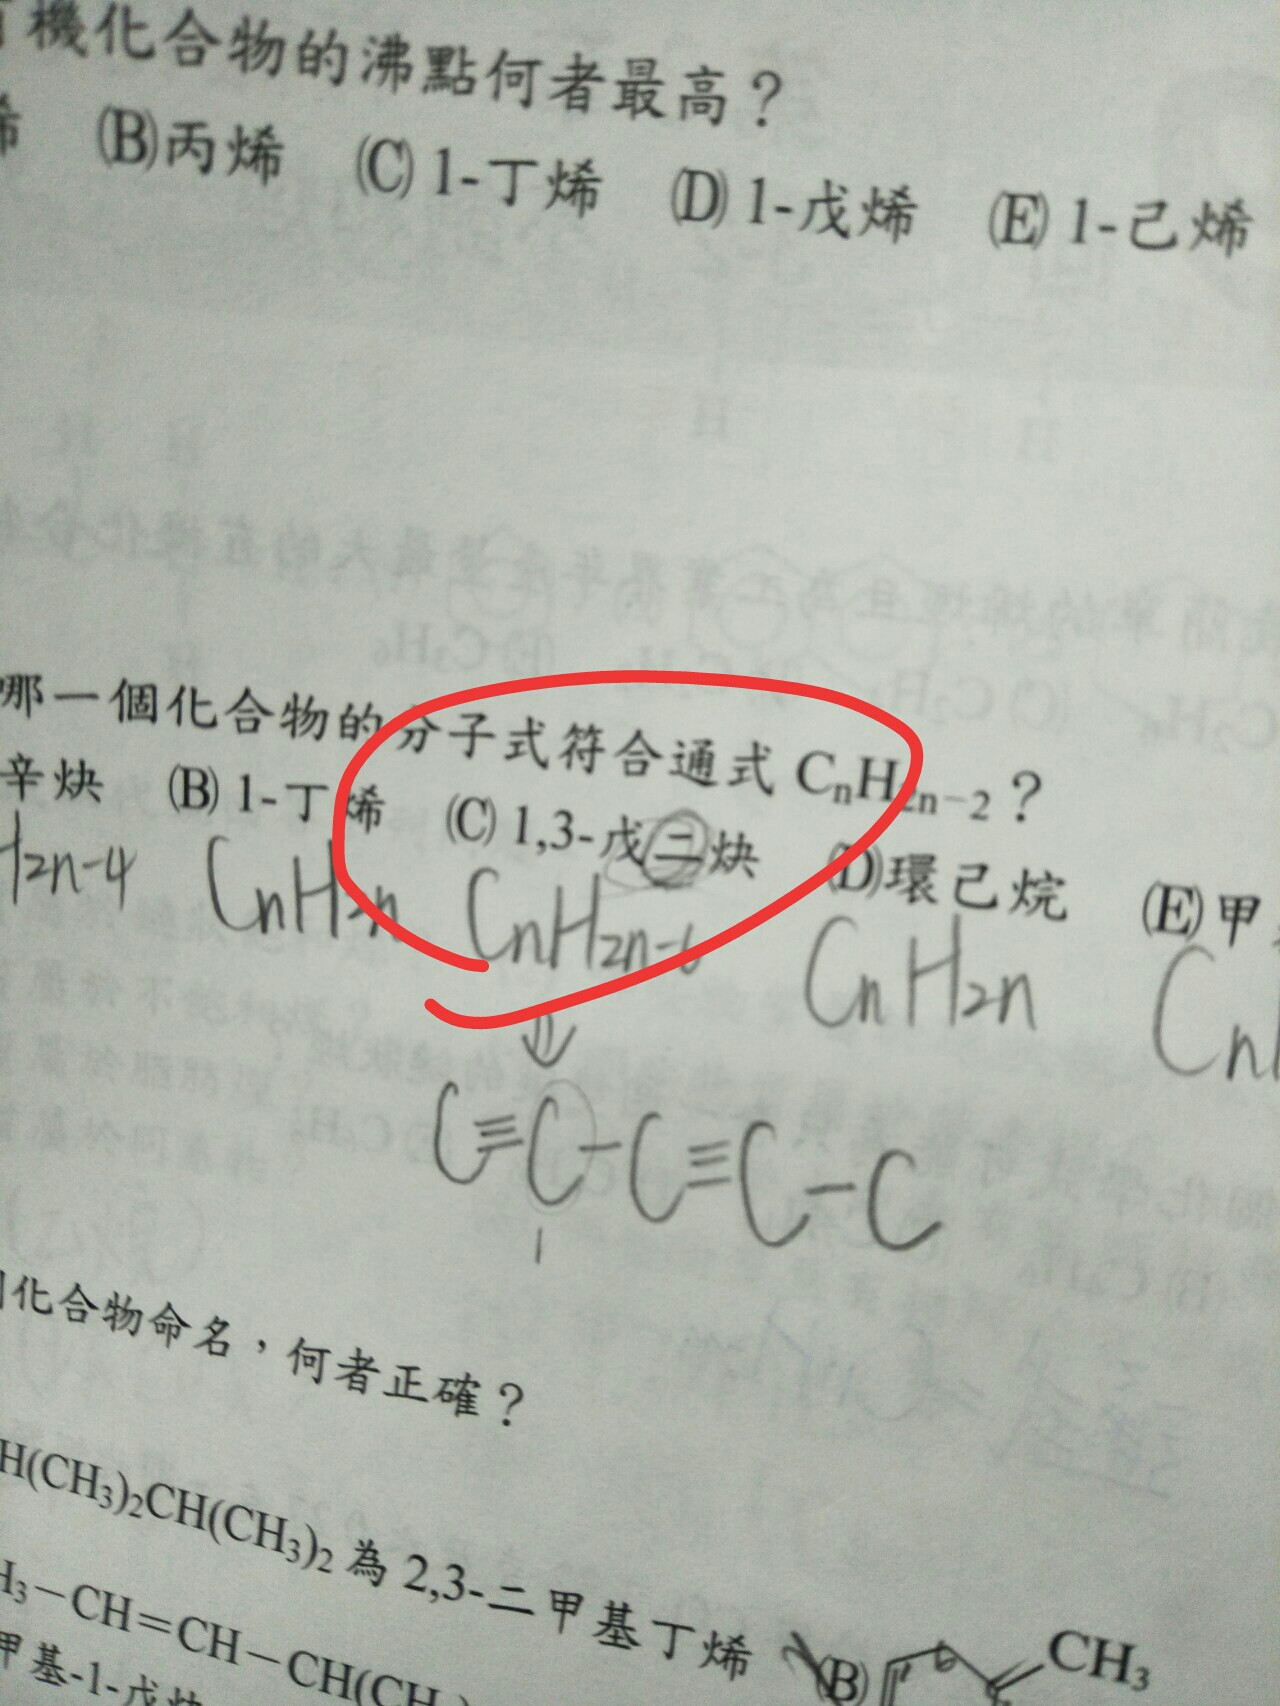 機化合物的沸點何者最高？
烯 (B)丙烯 (C) 1-丁烯 (D) 1-戊烯 (E) 1-己烯
哪一個化合物的分子式符合通式 CnH2n−2？
辛炔 (B) 1-丁烯 (C) 1,3-戊二炔 (D)環己烷 (E)甲
H2n-4 CnH2n CnH2n-6 CnH2n Cn
⇓
C≡C-C≡C-C
化合物命名，何者正確？
H(CH3)2CH(CH3)2 為 2,3-二甲基丁烯 (B) CH3
H3−CH=CH−CH(CH3)
甲基-1-戊炔